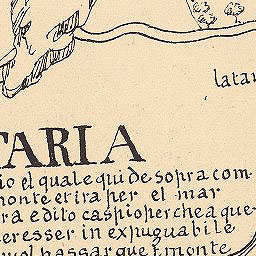 latar
TARIA
io el quale qui de sopra com
monte et ira per el mar
ra e dito caspio perche a que
eresser in expugnabile
passar que monte